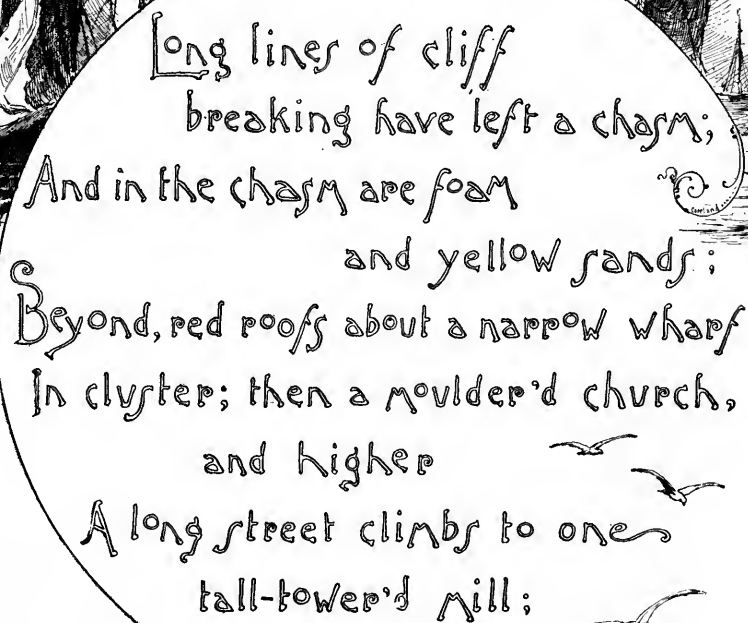 Long lines of cliff
breaking have left a chasm;
And in the chasm are foam
and yellow sands;
Beyond, red roofs about a narrow wharf
In cluster; then a moulder'd church,
and higher
A long street climbs to one
tall-tower'd mill;
Copeland